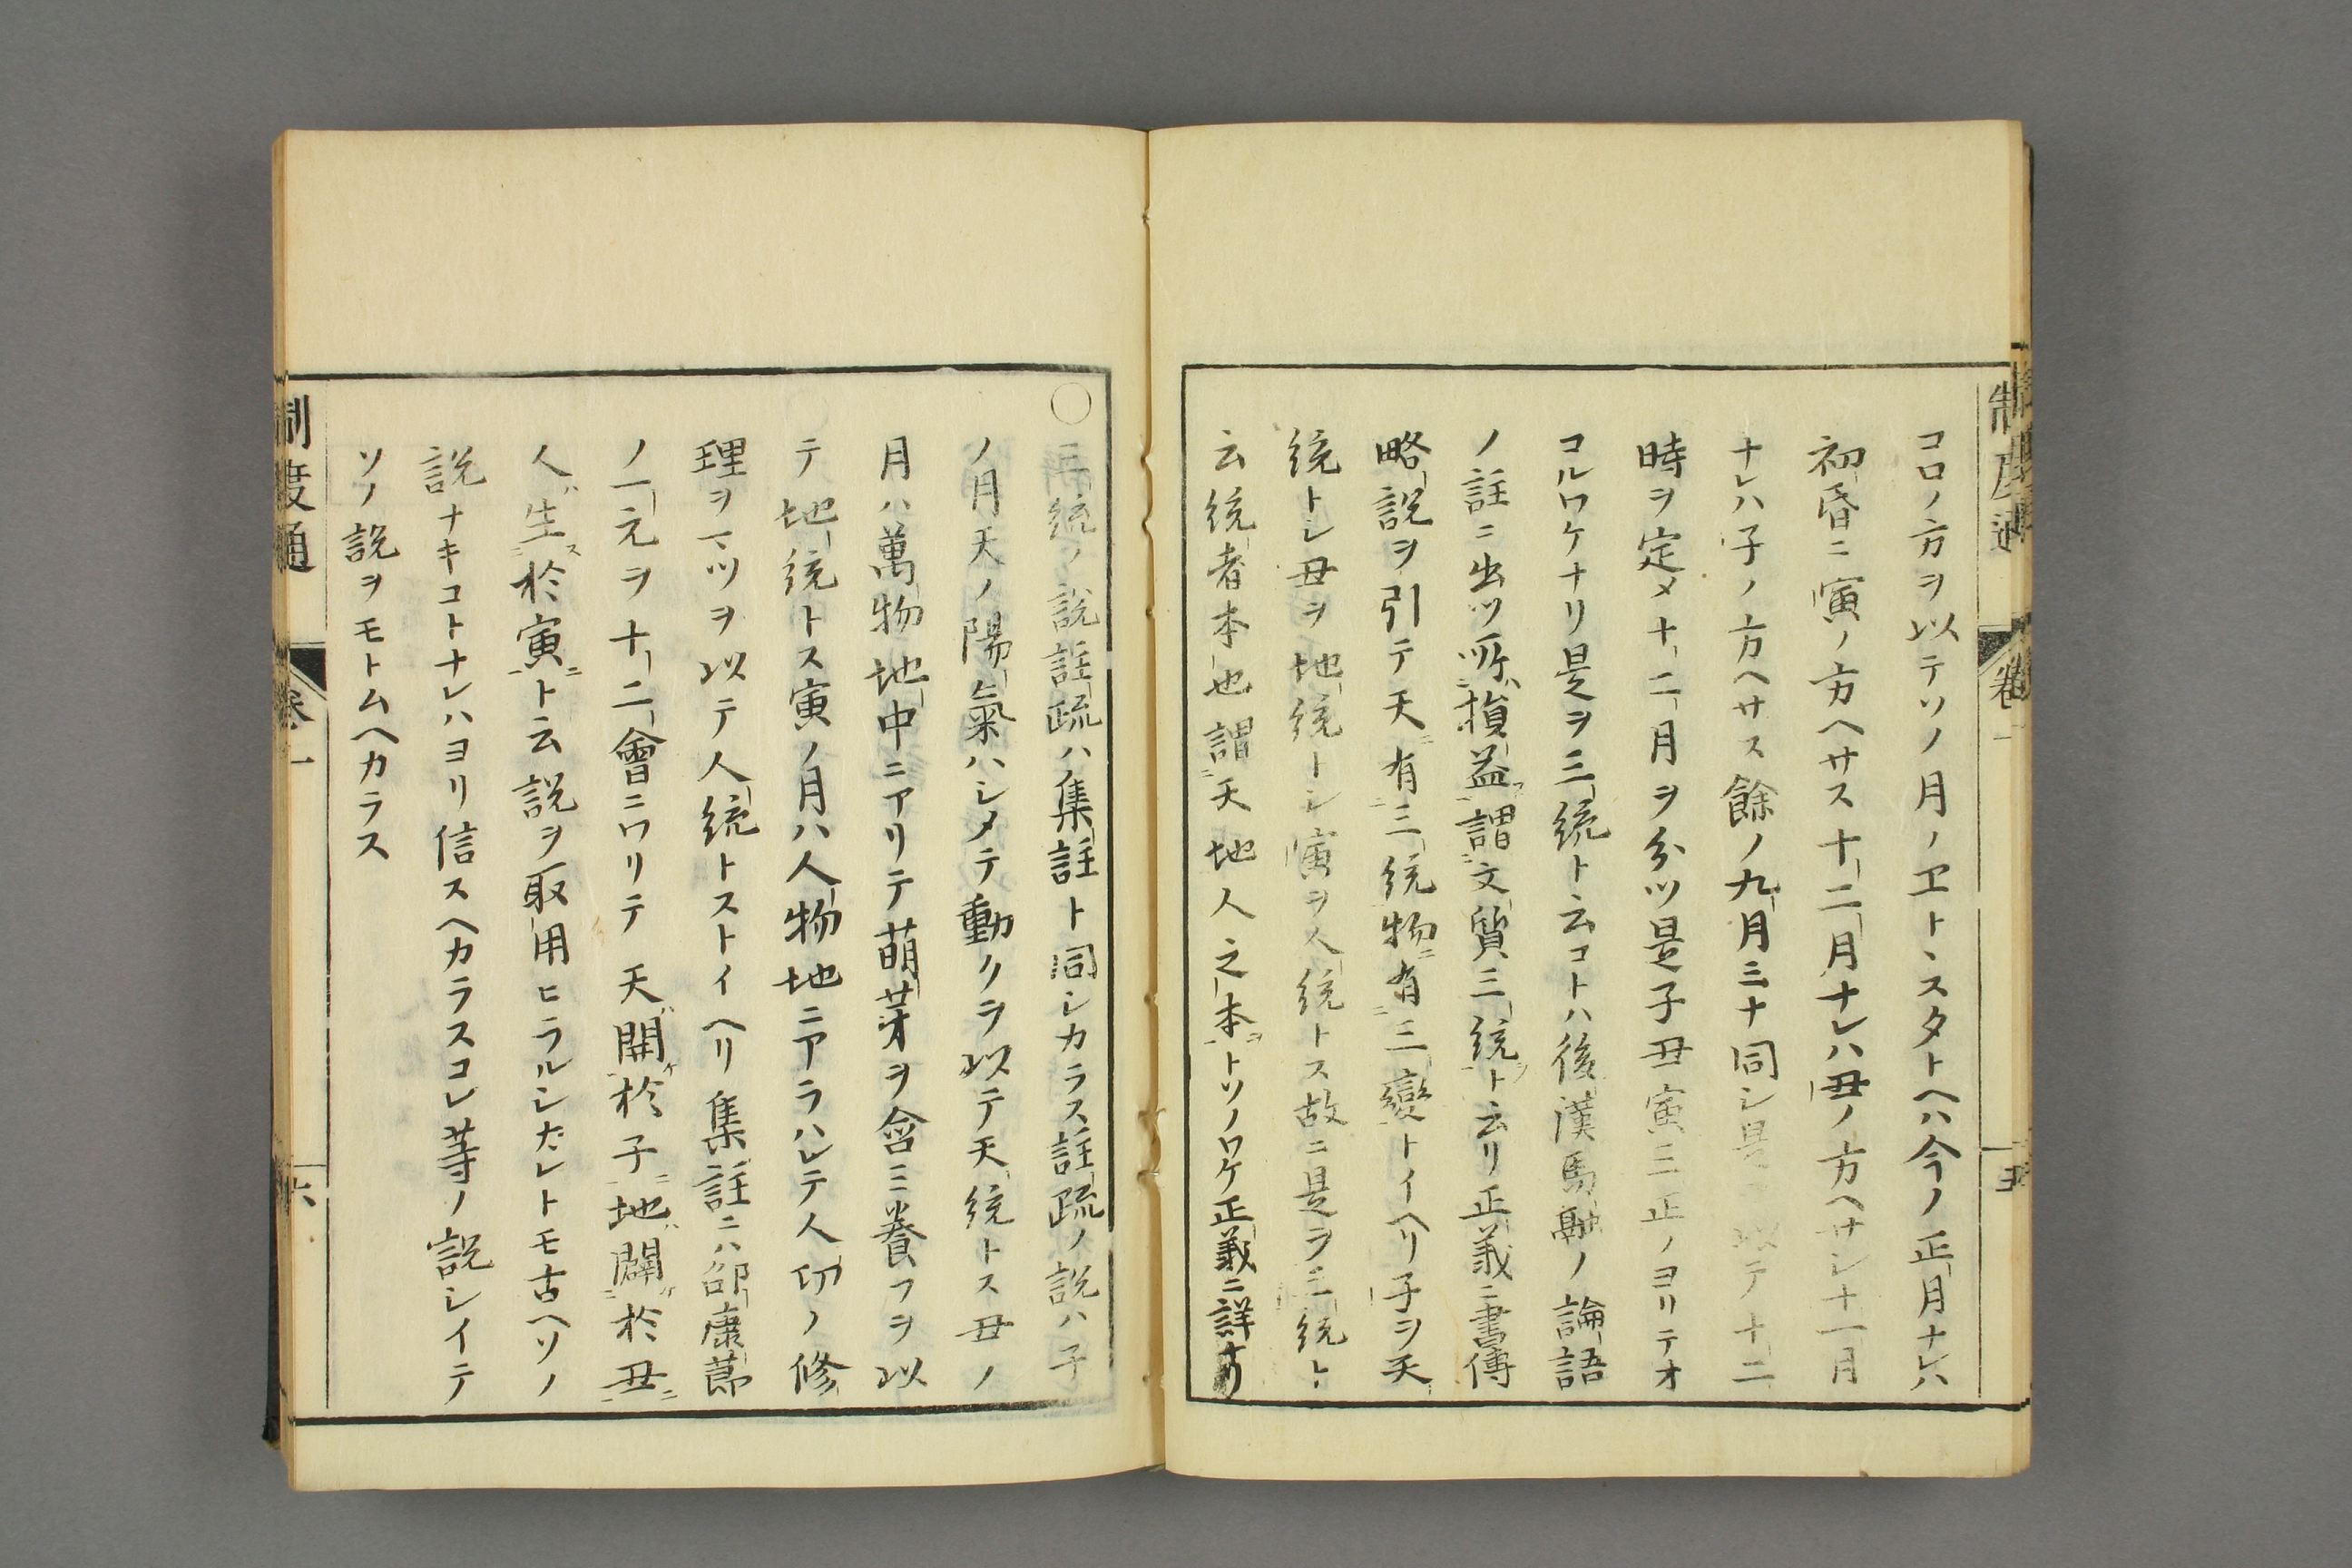 制度通 卷一 五
コロノ方ヲ以テソノ月ノヱトヽスタトヘハ今ノ正月ナレハ
初昏ニ寅ノ方ヘサス十二月ナレハ丑ノ方ヘサシ十一月
ナレハ子ノ方ヘサス餘ノ九月三ナ同シ是 以テ十二
時ヲ定メ十二月ヲ分ツ是子丑寅三正ノヨリテオ
コルワケナリ是ヲ三統ト云コトハ後漢馬融ノ論語
ノ註ニ出ツ所損益謂文質三統ト云リ正義ニ書傳
略說ヲ引テ天有三統物有三變トイヘリ子ヲ天
統トシ丑ヲ地統トシ寅ヲ人統トス故ニ是ヲ三統ト
云統者本也謂天地人之本トソノワケ正義ニ詳ナリ
○三統ノ說註疏ハ集註ト同シカラス註疏ノ說ハ子
ノ月天ノ陽氣ハシメテ動クヲ以テ天統トス丑ノ
月ハ萬物地中ニアリテ萌芽ヲ含ミ養フヲ以
テ地統トス寅ノ月ハ人物地ニアラハレテ人功ノ修
理ヲマツヲ以テ人統トストイヘリ集註ニハ邵康節
ノ一元ヲ十二會ニワリテ天開於子地闢於丑
人生於寅ト云說ヲ取用ヒラルシカレトモ古ヘソノ
說ナキコトナレハヨリ信スヘカラスコレ等ノ說シイテ
ソノ說ヲモトムヘカラス
制度通 卷一 六